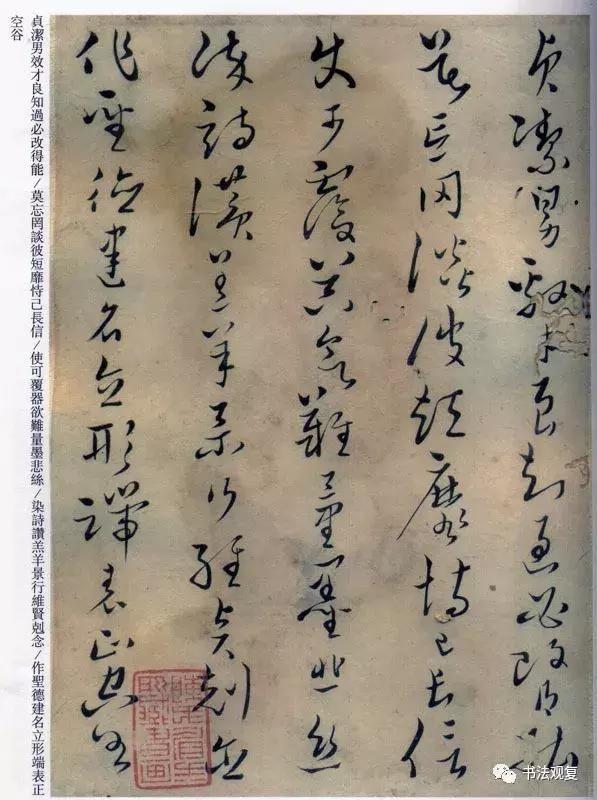 貞潔男效才良知過必改得能
莫忘罔談彼短靡恃己長信
使可覆器欲難量墨悲絲
染詩讚羔羊景行維賢剋念
作聖德建名立形端表正空谷
貞潔男效才良知過必改得能/莫忘罔談彼短靡恃己長信/使可覆器欲難量墨悲絲/染詩讚羔羊景行維賢剋念/作聖德建名立形端表正
空谷
书法观复